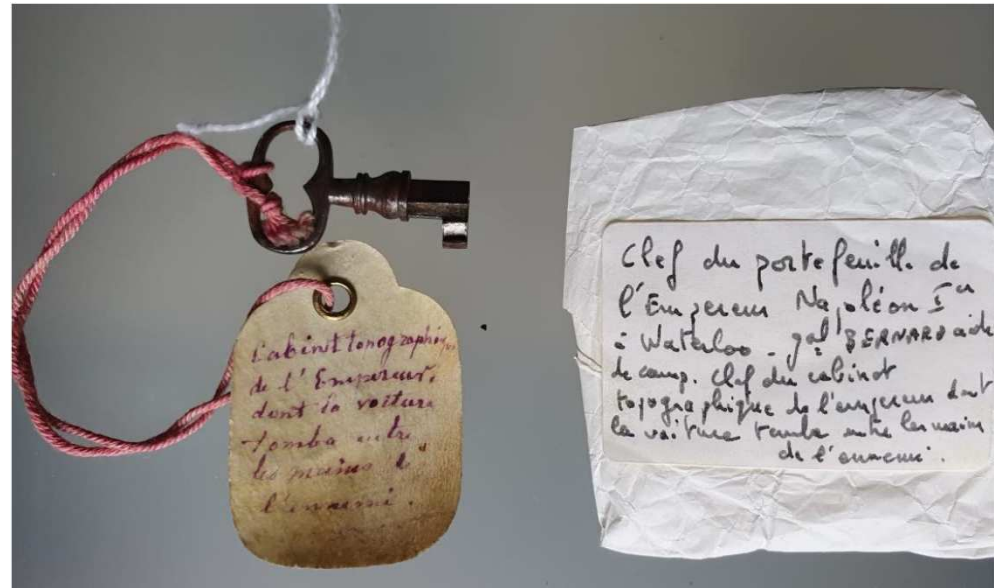 Cabinet tonographique
de l'Empereur,
dont la voiture
tomba entre
les mains de
l'ennemi.
Clef du portefeuille de
l'Empereur Napoléon Ier
à Waterloo - gal BERNARD aide
de camp. Clef du cabinet
topographique de l'empereur dont
la voiture tomba entre les mains
de l'ennemi.